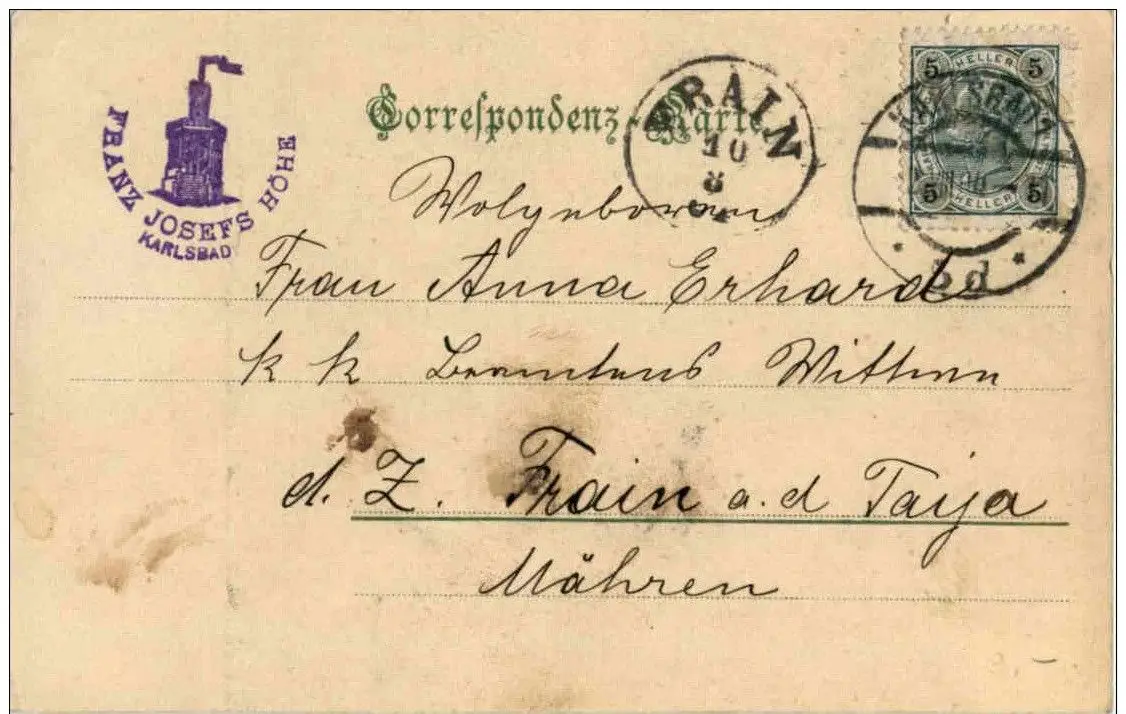 FRANZ JOSEFS HÖHE
KARLSBAD
Correspondenz-Karte
FRAIN
10
8
5 HELLER 5
5 HELLER 5
5d
Wolgeboren
Frau Anna Erhard
k k Beamtens Wittwe
d. Z. Frain a.d Taija
Mähren